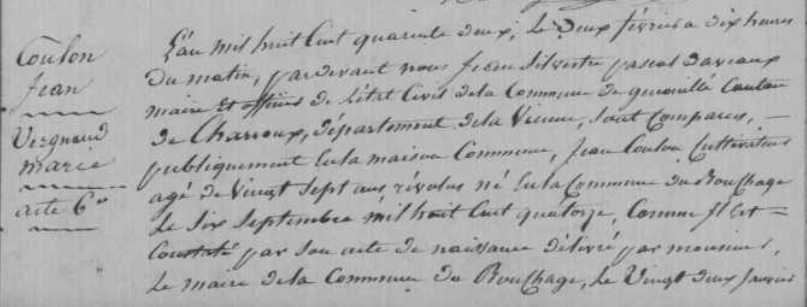 Coulon
Jean
Vergnaud
marie
acte 6e
L'an mil huit Cent quarante deux, le Deux février a dix heures
Du matin, pardevant nous Jean Silvestre pascal
maire Et officier De l'état Civil dela Commune De Canton
De Charroux, Département dela Vienne, sont Comparus, —
publiquement En la maison Commune, Jean Coulon Cultivateur
agé De Vingt Sept ans révolus né En la Commune du Bouchage
le Six Septembre mil huit Cent quatorze, Comme Il est —
Constaté par Son acte De naissance Délivré par monsieur,
le maire dela Commune du Bouchage, le Vingt deux Janvier